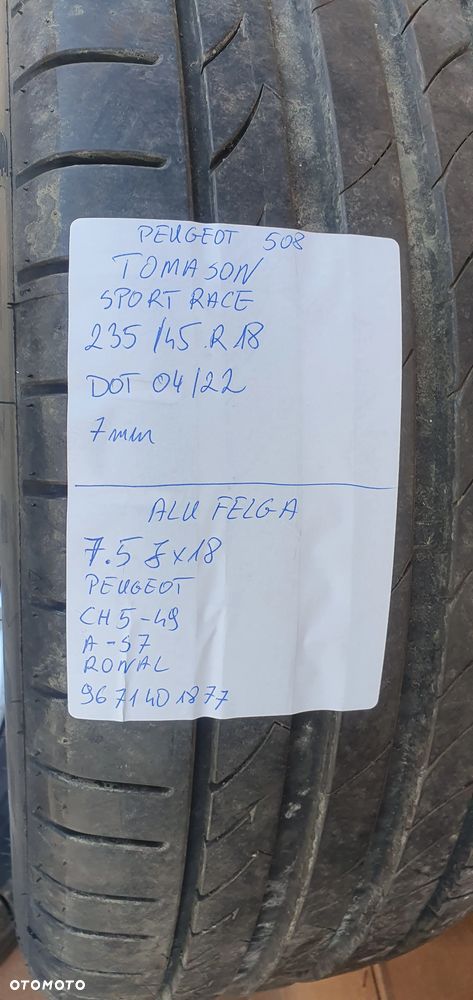 PEUGEOT 508
TOMASON
SPORT RACE
235/45 R18
DOT 04/22
7mm
ALU FELGA
7.5 J x 18
PEUGEOT
CH 5-49
A-57
RONAL
9671401877
OTOMOTO